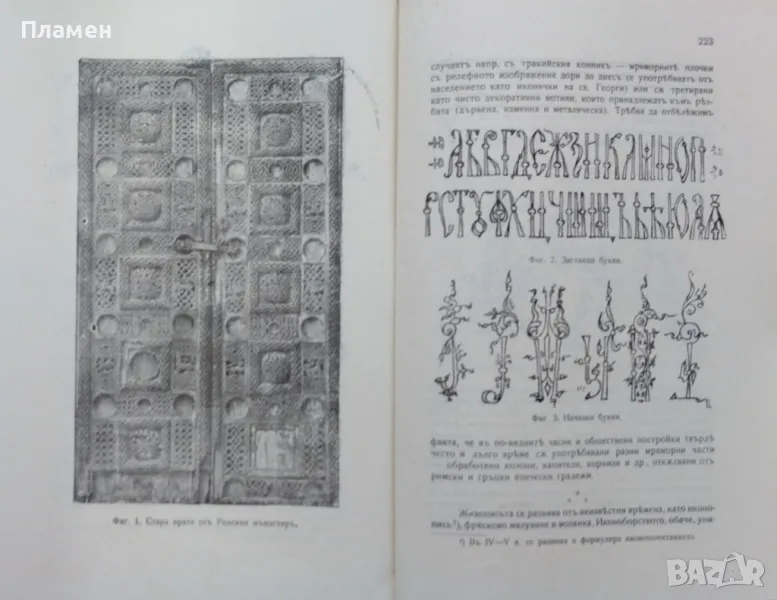 Пламен
Фиг. 1. Стара врата отъ Рилския мънастиръ.
223
случаятъ напр. съ тракийския конникъ — мраморнитѣ плочки
съ релефното изображение дори до днесъ се употрѣбяватъ отъ
населението като иконички на св. Георги) или сѫ третирани
като чисто декоративни мотиви, които принадлежатъ къмъ рѣз-
бата (дървена, каменна и металическа). Трѣбва да отбѣлежимъ
Фиг. 2. Заставки букви.
Фиг. 3. Начални букви.
факта, че въ по-виднитѣ частни и обществени постройки твърдѣ
често и дълго врѣме сѫ употрѣбявани разни мраморни части
— обработени колони, капители, корнизи и др., откѫснати отъ
римски и гръцки езически градежи.
* * *
Живописьта се развива отъ неизвѣстни врѣмена, като иконо-
пись¹), фрясково малуване и мозаика. Иконоборството, обаче, уни-
¹) Въ IV—V в. се развива и формулира иконопочитанието.
BAZAR